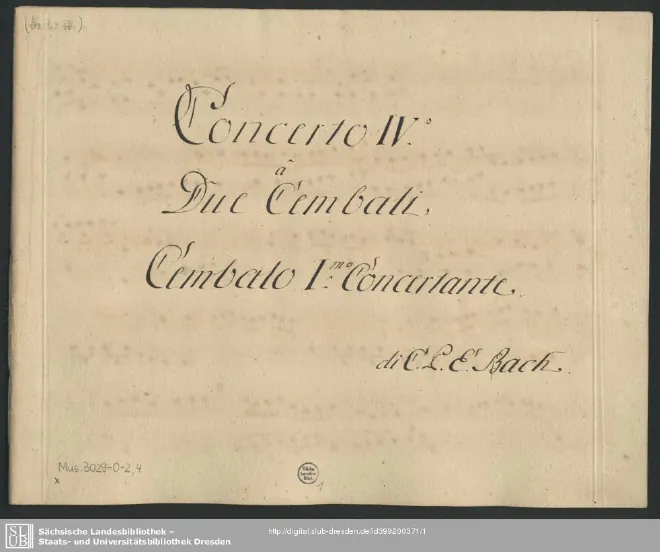 Concerto IV.º
â
Due Cembali,
Cembalo I.mo Concertante.
di C. P. E. Bach.
Mus. 3029-O-2,4
x
1
SLUB
Sächsische Landesbibliothek –
Staats- und Universitätsbibliothek Dresden
http://digital.slub-dresden.de/id399200371/1